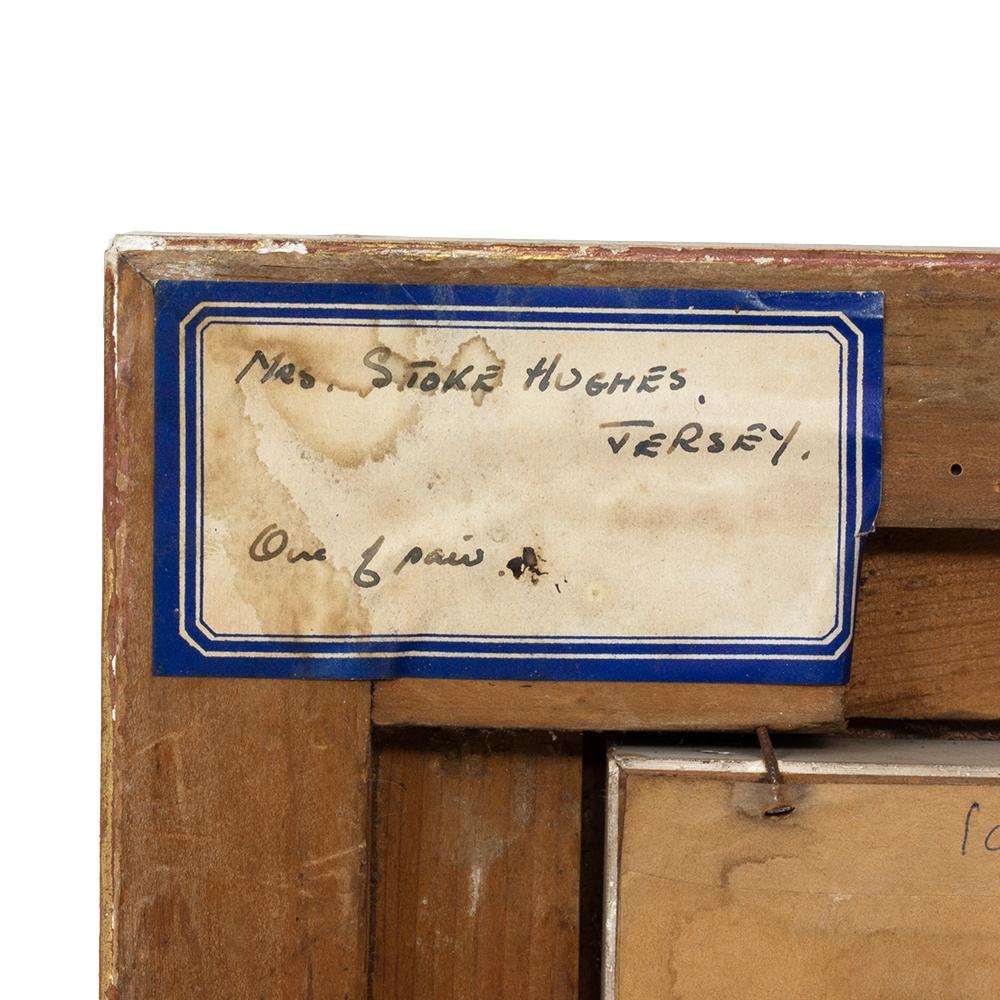 Mrs. STOKE HUGHES,
JERSEY.
One of pair.